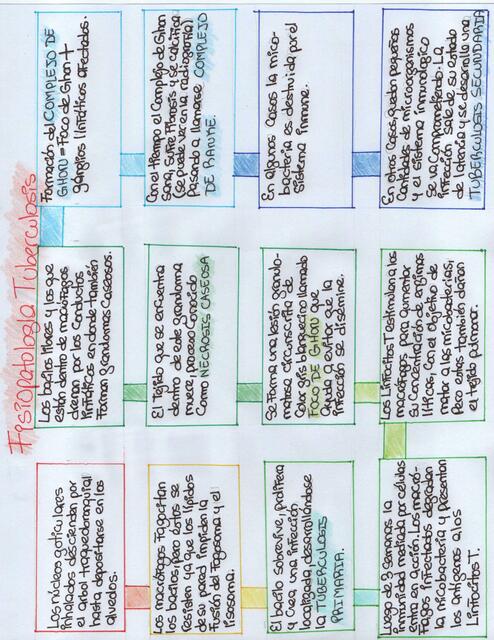 Fisiopatología Tuberculosis
Los núcleos goticulares
inhalados descienden por
el arbol traqueobronquial
hasta depositarse en los
alveolos.
Los macrófagos fagocitan
los bacilos, pero éstos se
resisten ya que los lípidos
de su pared impiden la
fusión del fagosoma y el
lisosoma.
El bacilo sobrevive, prolifera
y crea una infección
localizada, desarrollándose
la TUBERCULOSIS
PRIMARIA.
Luego de 3 semanas la
inmunidad mediada por células
entra en acción. Los macró-
fagos infectados degradan
la micobacteria y presentan
los antígenos a los
linfocitos T.
Los linfocitos T estimulan a los
macrófagos para aumentar
su concentración de enzimas
líticas, con el objetivo de
matar a las micobacterias;
pero éstas también dañan
el tejido pulmonar.
Se forma una lesión granulo-
matosa circunscrita de
color gris blanquecino llamado
FOCO DE GHON que
ayuda a evitar que la
infección se disemine.
El tejido que se encuentra
dentro de este granuloma
muere, proceso conocido
como NECROSIS CASEOSA
Los bacilos libres y los que
están dentro de macrófagos
drenan por los conductos
linfáticos en donde también
forman granulomas caseosos.
Formación del COMPLEJO DE
GHON = Foco de Ghon +
ganglios linfáticos afectados.
Con el tiempo el Complejo de Ghon
sana, sufre fibrosis y se calcifica
(se puede ver en la radiografía)
pasando a llamarse COMPLEJO
DE RANKE.
En algunos casos la mico-
bacteria es destruida por el
sistema inmune.
En otros casos, quedan pequeñas
cantidades de microorganismos
y el sistema inmunologico
se va comprometiendo. La
infección sale de su estado
de latencia y se desarrolla una
TUBERCULOSIS SECUNDARIA